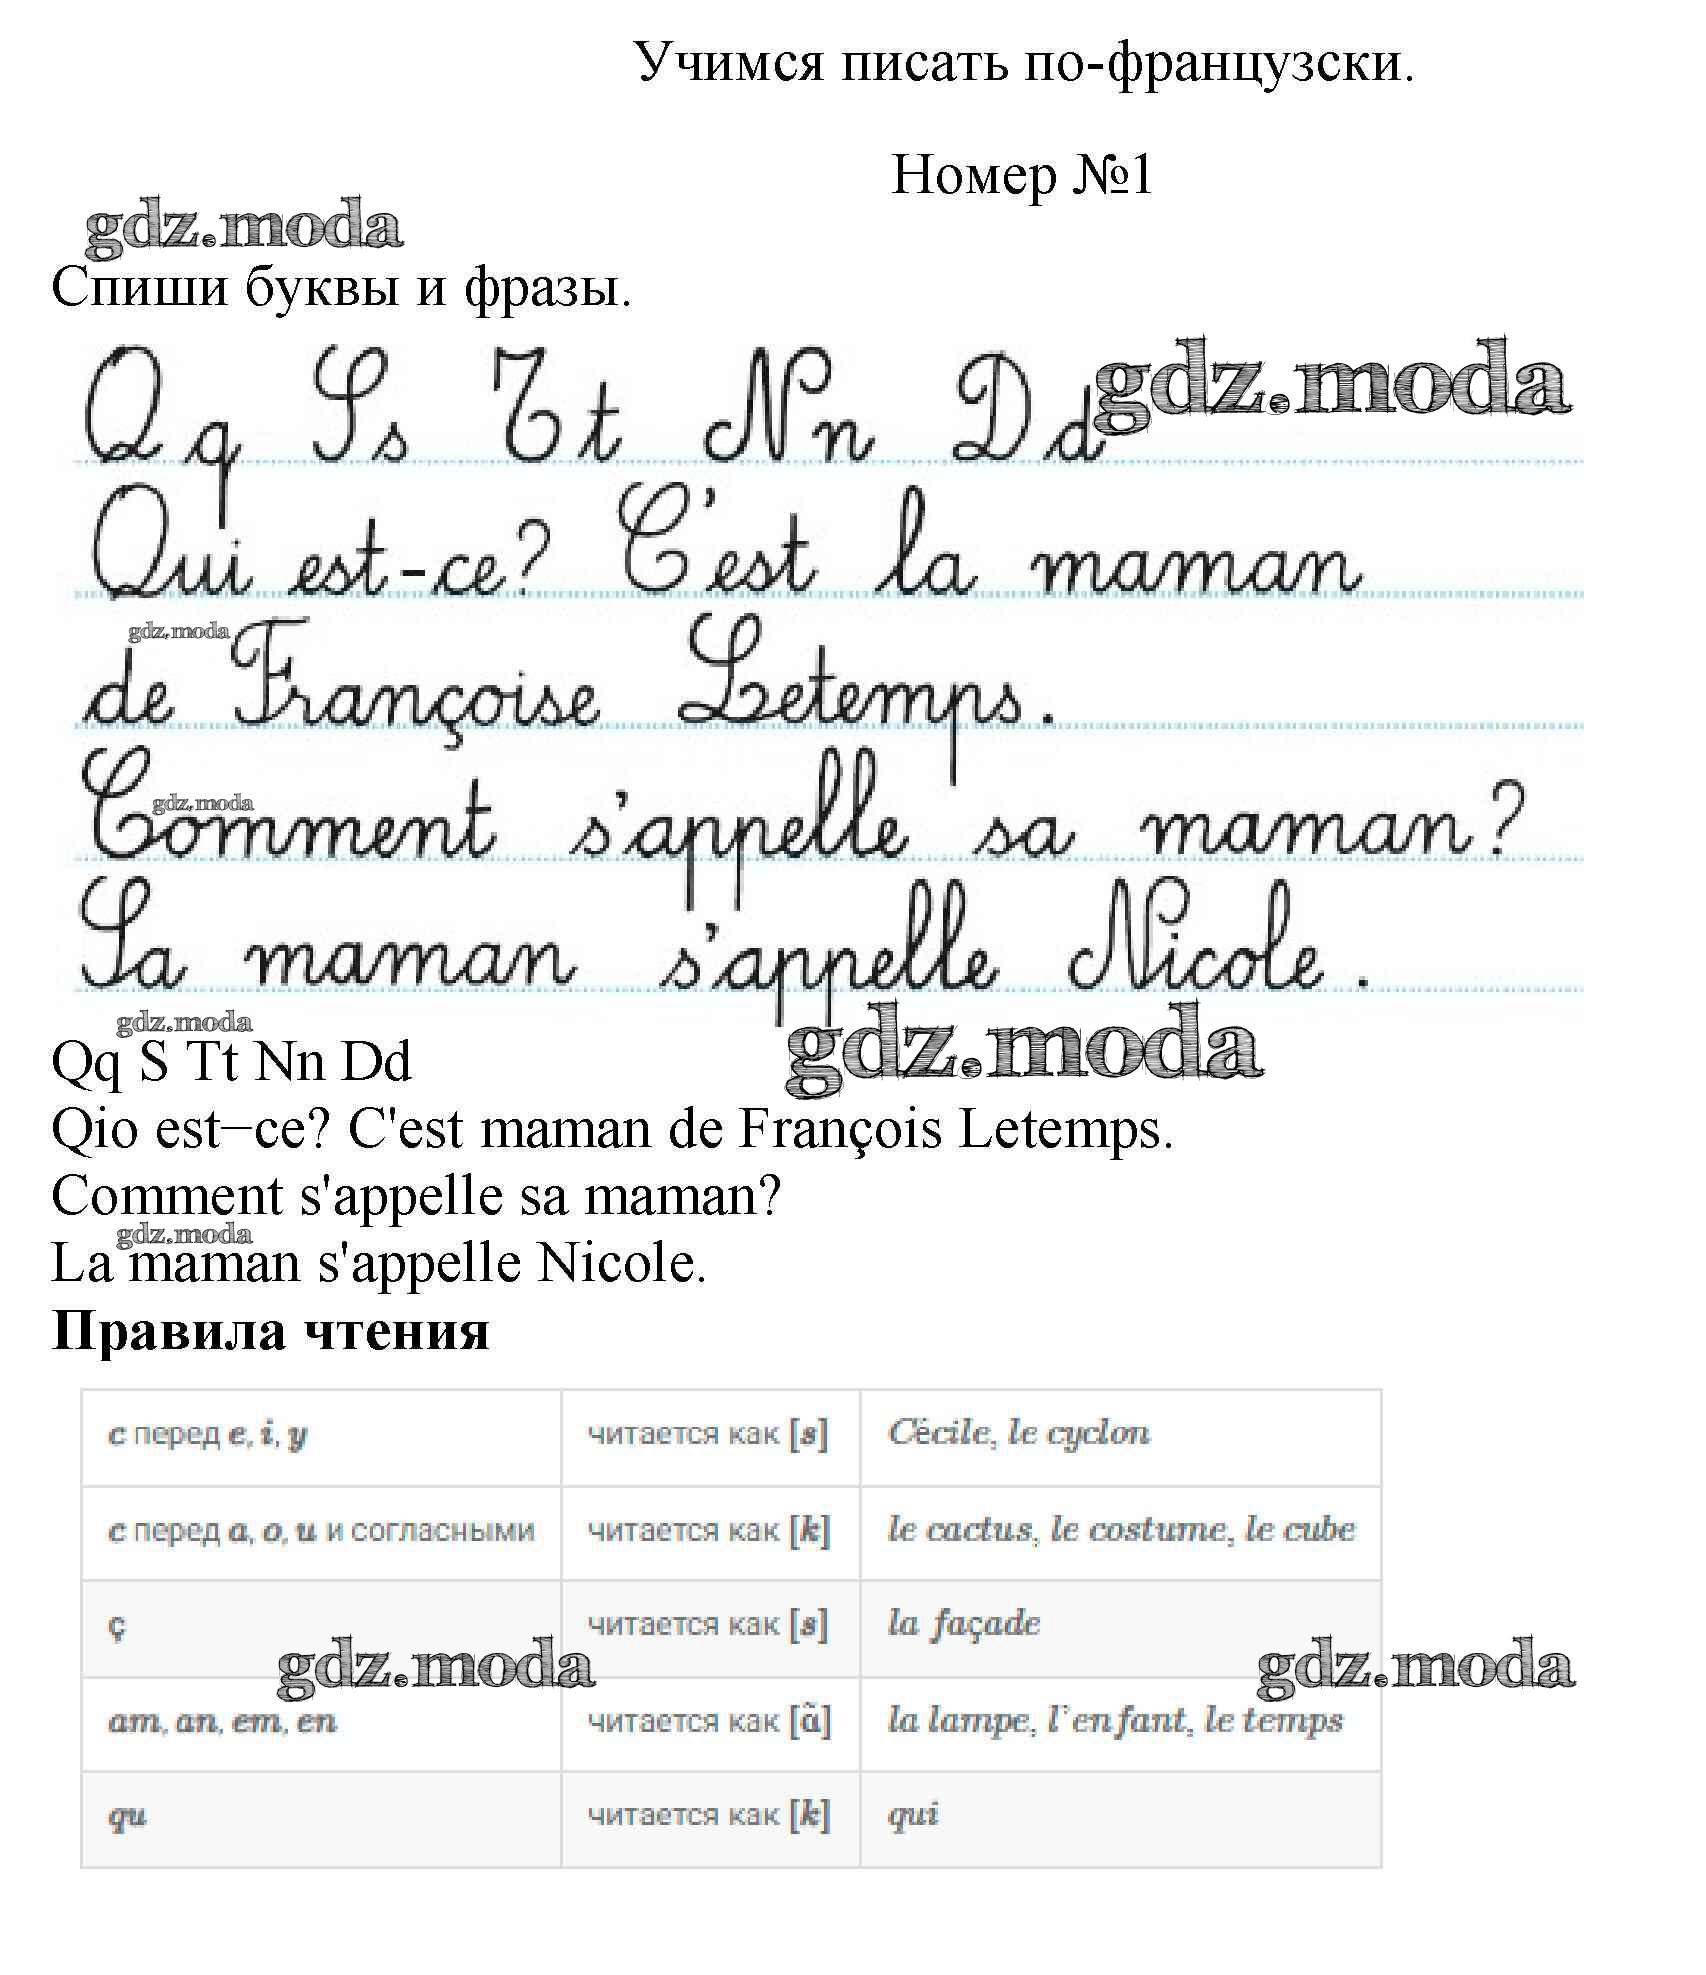 Учимся писать по-французски.
Номер №1
gdz.moda
Спиши буквы и фразы.
Qq Ss Tt Nn Dd gdz.moda
Qui est-ce? C'est la maman
gdz.moda
de Françoise Letemps.
gdz.moda
Comment s'appelle sa maman?
Sa maman s'appelle Nicole.
gdz.moda gdz.moda
Qq S Tt Nn Dd
Qio est−ce? C'est maman de François Letemps.
Comment s'appelle sa maman?
gdz.moda
La maman s'appelle Nicole.
Правила чтения
c перед e, i, y читается как [s] Cécile, le cyclon
c перед a, o, u и согласными читается как [k] le cactus, le costume, le cube
ç читается как [s] la façade
gdz.moda gdz.moda
am, an, em, en читается как [ã] la lampe, l'enfant, le temps
qu читается как [k] qui